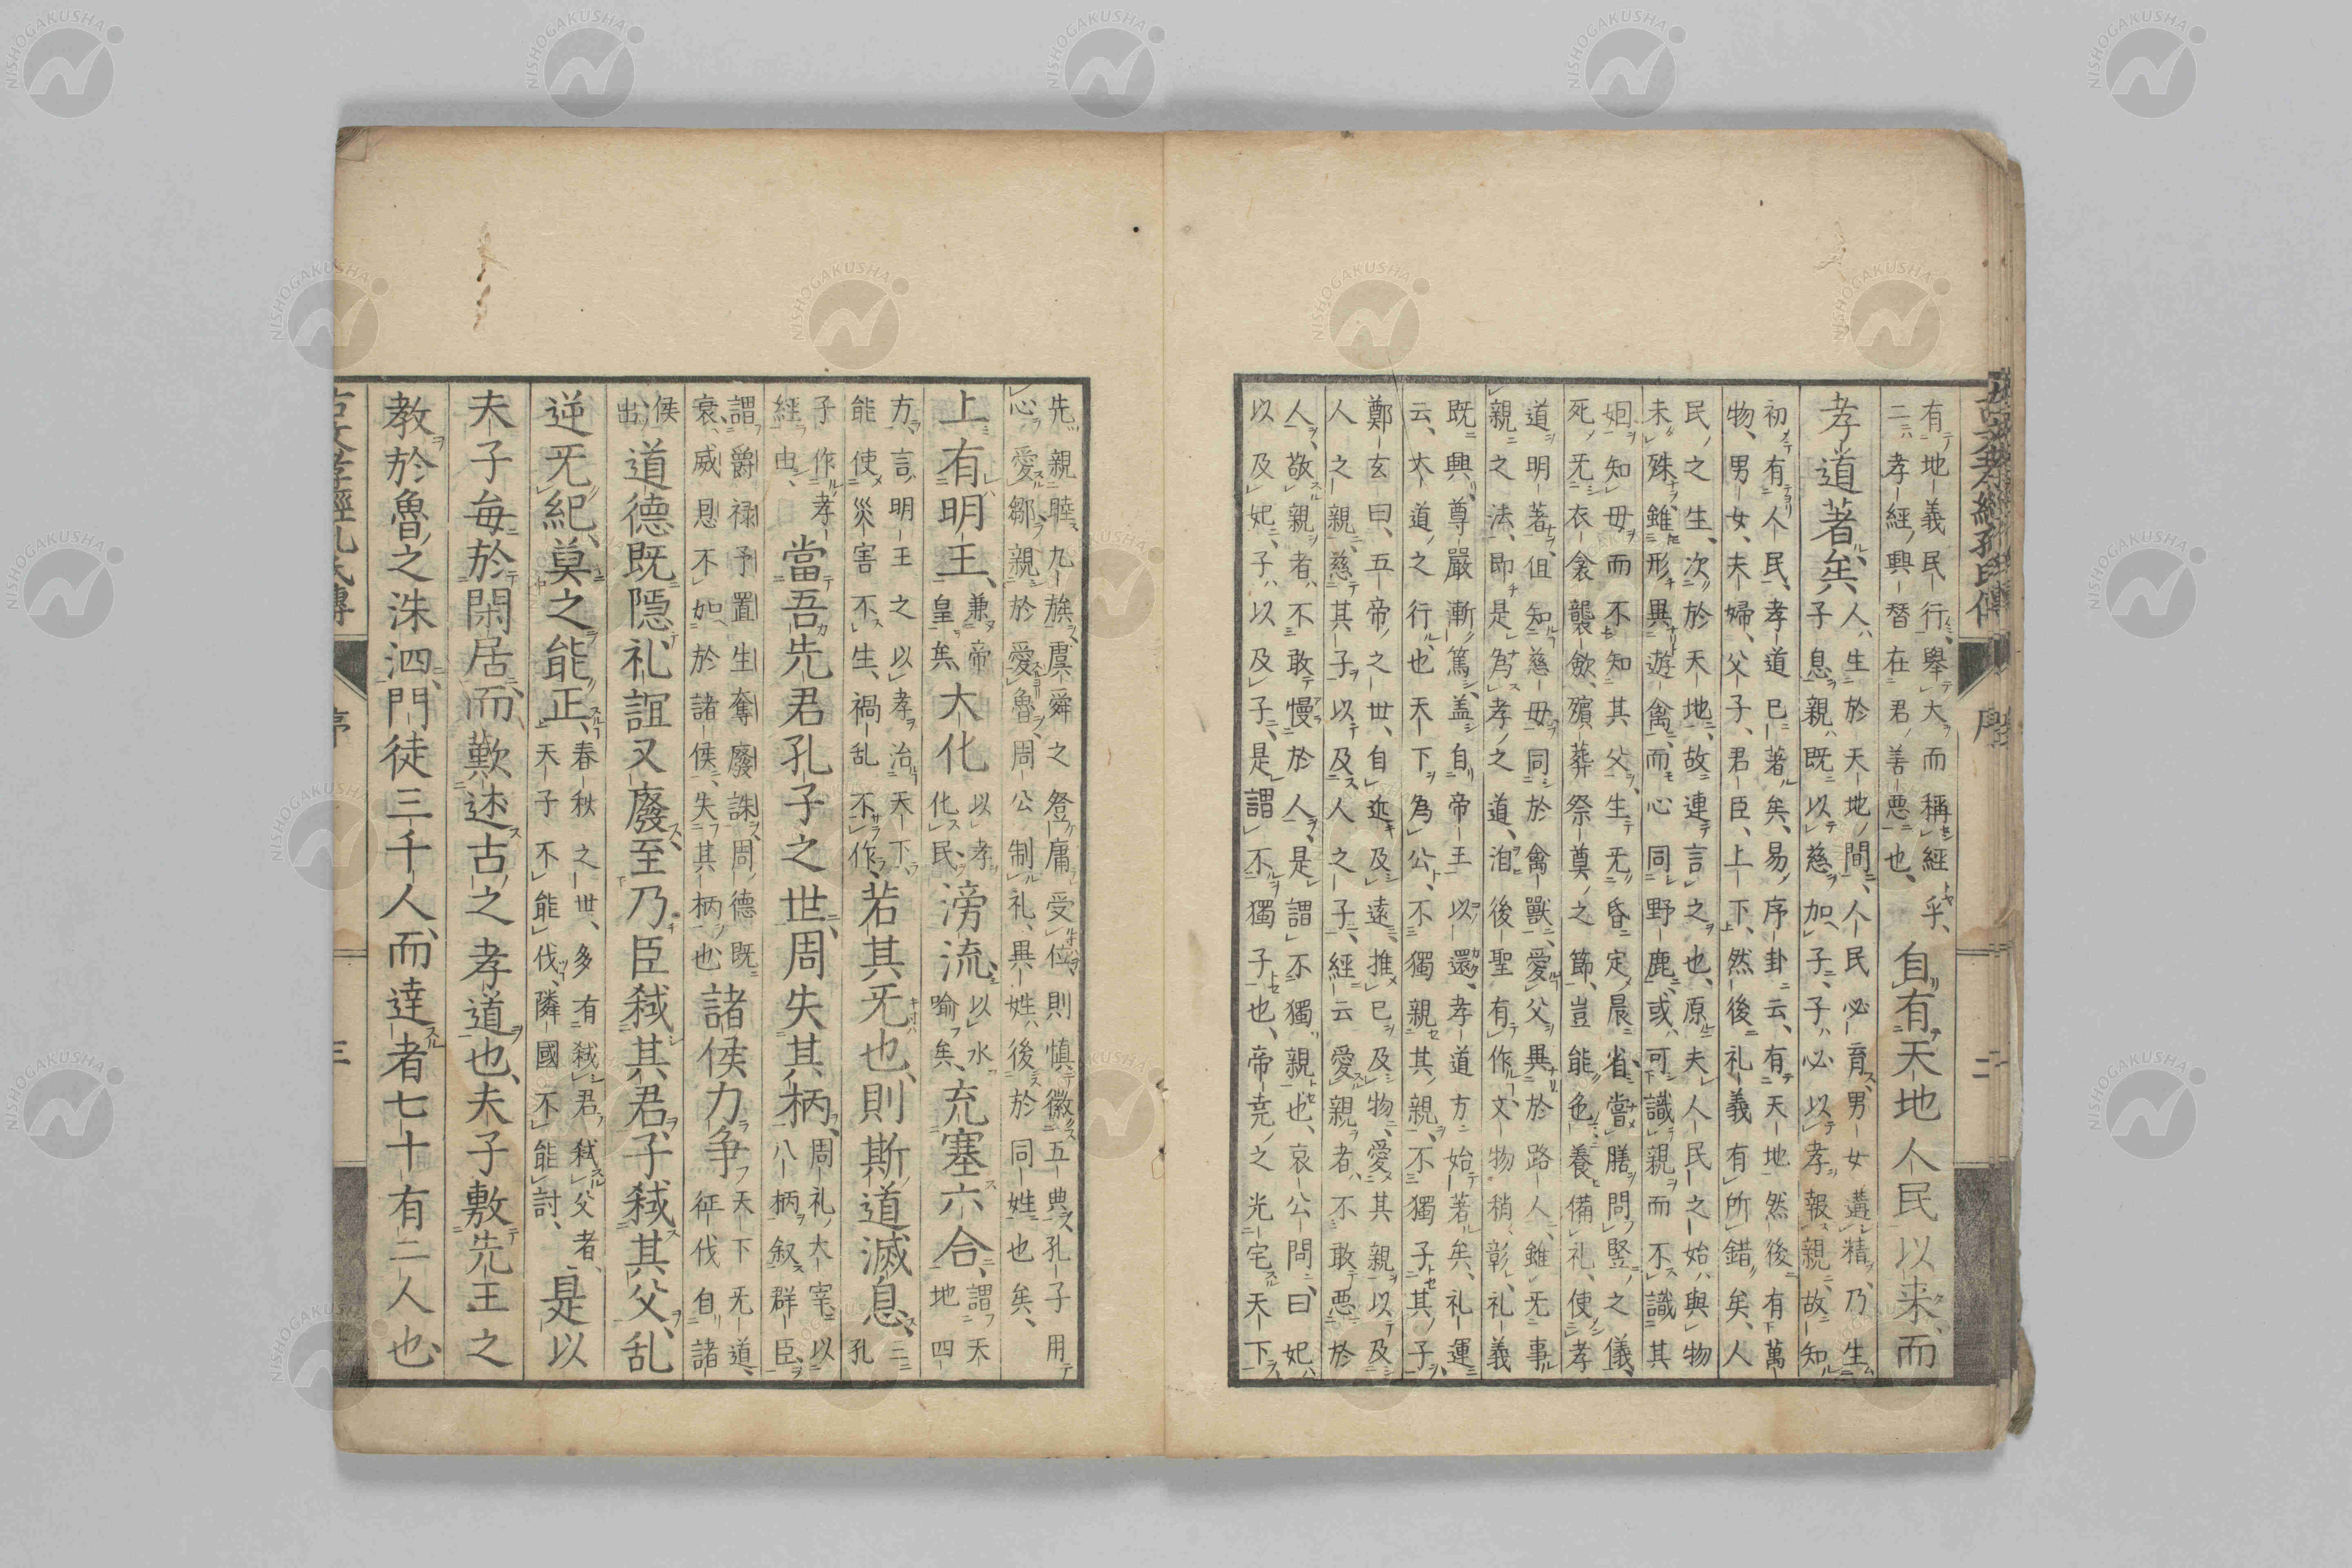 有地義民行擧大而稱經乎
二孝經興替在君善惡也
自有天地人民以来而
孝道著矣
人生於天地間人民必育男女遘精乃生
子息親既以慈加子子必以孝報親故知
初有人民孝道已著矣易序卦云有天地然後有萬
物男女夫婦父子君臣上下然後礼義有所錯矣人
民之生次於天地故連言之也原夫人民之始與物
未殊雖形異遊禽而心同野鹿或可識親而不識其
知母而不知其父生无昏定晨省嘗膳問竪之儀
死无衣衾襲歛殯葬祭奠之節豈能色養備礼使孝
道明著但知慈母同於禽獸愛父異於路人雖无事
親之法即是為孝之道洎後聖有作文物稍彰礼義
既興尊嚴漸篤盖自帝王以還孝道方始著矣礼運
云大道之行也天下為公不獨親其親不獨子其子
鄭玄曰五帝之世自近及遠推已及物愛其親以及
人之親慈其子以及人之子經云愛親者不敢惡於
人敬親者不敢慢於人是謂不獨親也哀公問曰妃
以及妃子以及子是謂不獨子也帝堯之光宅天下
先親睦九族虞舜之登庸受位則慎徽五典孔子用
心愛鄒親於愛魯周公制礼異姓後於同姓也矣
上有明王
兼帝
皇矣
大化
以孝
化民
滂流
以水
喻矣
充塞六合
謂天
地四
方言明王之以孝治天下
能使災害不生禍乱不作
若其无也則斯道滅息
二
孔
子作孝
經由
當吾先君孔子之世周失其柄
周礼大宰以
八柄叙群臣
謂爵禄予置生奪廢誅周德既
衰威恩不如於諸侯失其柄也
諸侯力争
天下无道
征伐自諸
侯
出
道德既隠礼誼又廢至乃臣弑其君子弑其父乱
逆无紀莫之能正
春秋之世多有弑君弑父者
天子不能伐隣國不能討
是以
夫子毎於閑居而歎述古之孝道也夫子敷先王之
教於魯之洙泗門徒三千人而達者七十有二人也
古文孝經孔氏傳
序
三
序
二
NISHOGAKUSHA